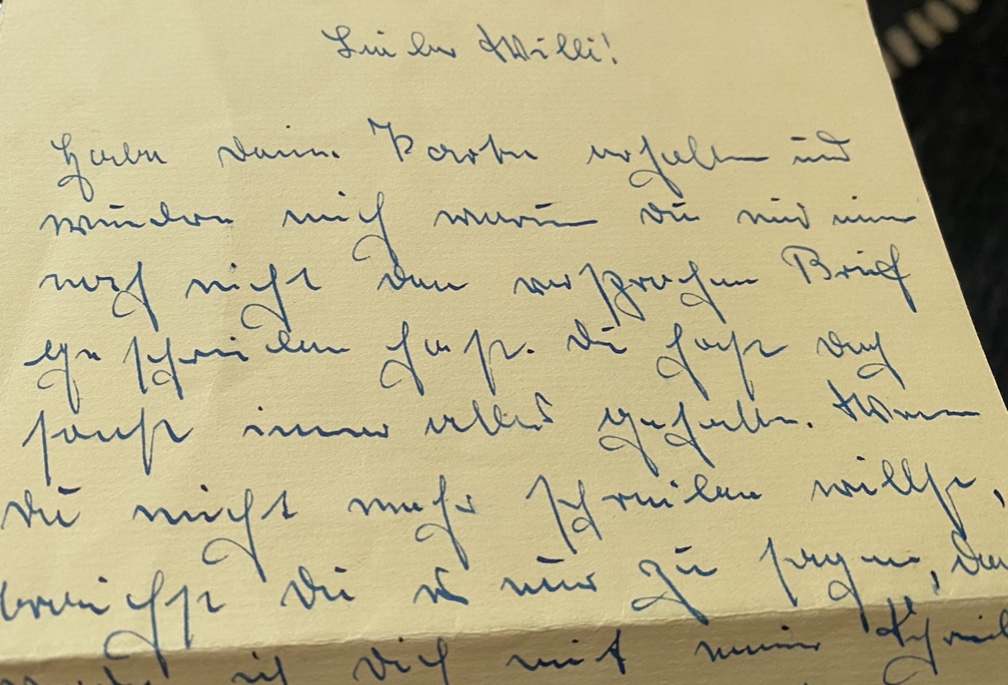 Lieber Willi!
Habe deine Karte erhalten und
wundere mich warum du mir immer
noch nicht den versprochen Brief
geschrieben hast. Du hast doch
sonst immer alles gehalten. Wenn
du nicht mehr schreiben willst,
brauchst du es nur zu sagen, dann
werde ich dich mit meiner Schreib